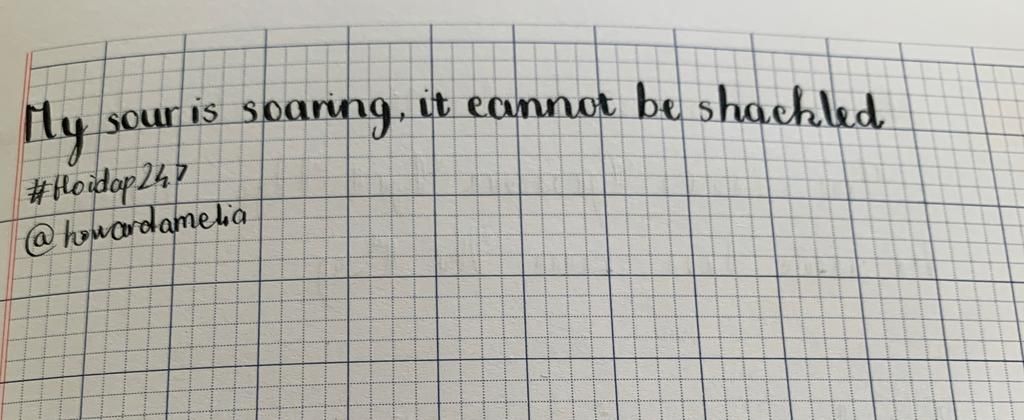 My sour is soaring, it cannot be shackled
#Hoidap247
@howardamelia